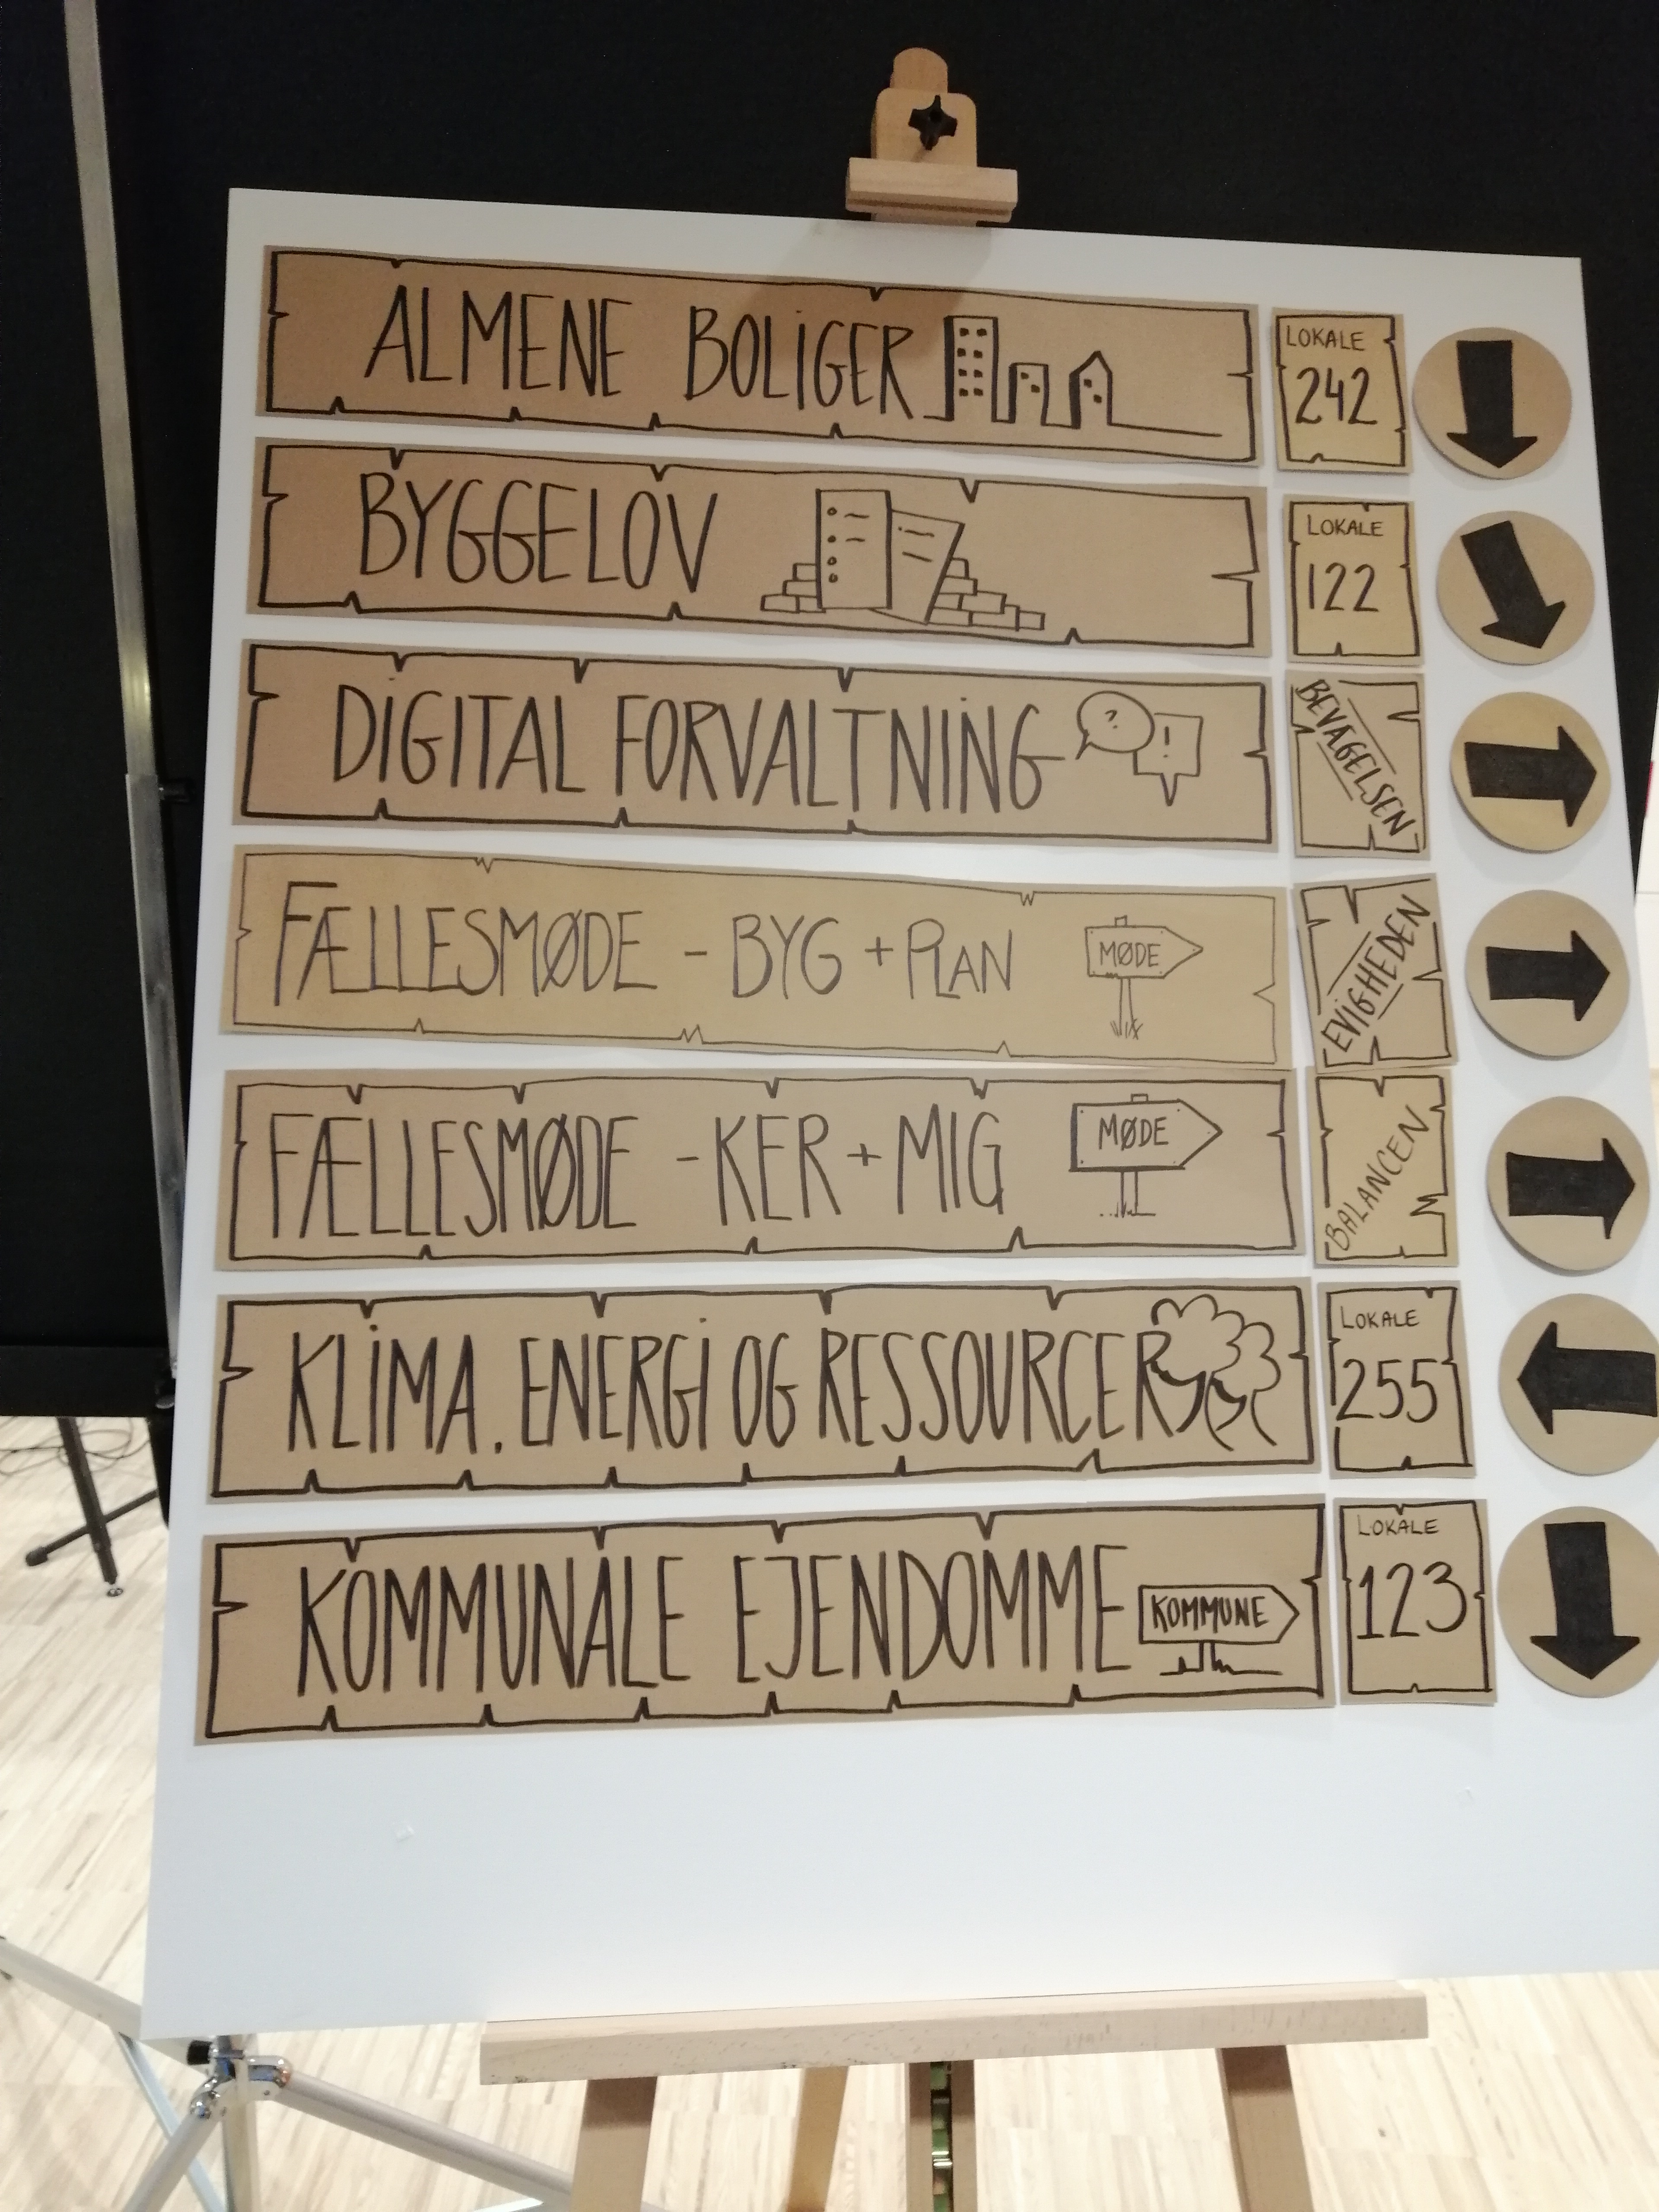 ALMENE BOLIGER
LOKALE
242
BYGGELOV
LOKALE
122
DIGITAL FORVALTNING
? !
BEVAGELSEN
FÆLLESMØDE - BYG + PLAN
MØDE
EVIGHEDEN
FÆLLESMØDE - KER + MIG
MØDE
BALANCEN
KLIMA. ENERGI OG RESSOURCER
LOKALE
255
KOMMUNALE EJENDOMME
KOMMUNE
LOKALE
123